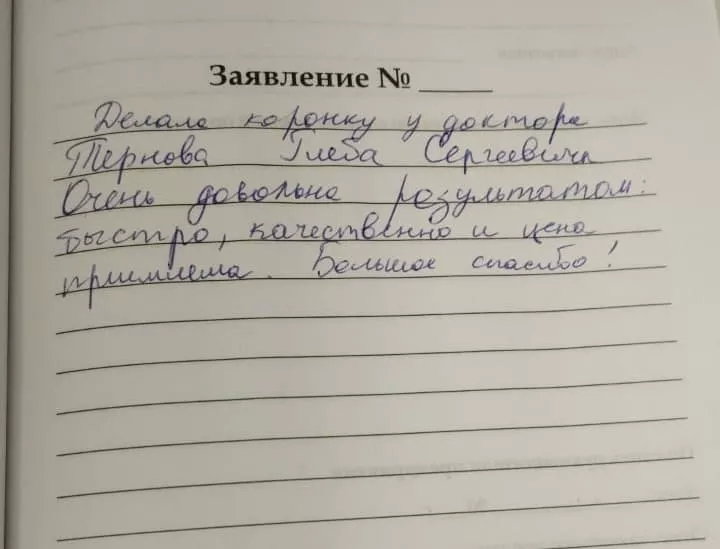 Заявление № _____
Делала коронку у доктора
Тернова Глеба Сергеевича
Очень довольна результатом:
быстро, качественно и цена
приемлема. Большое спасибо!